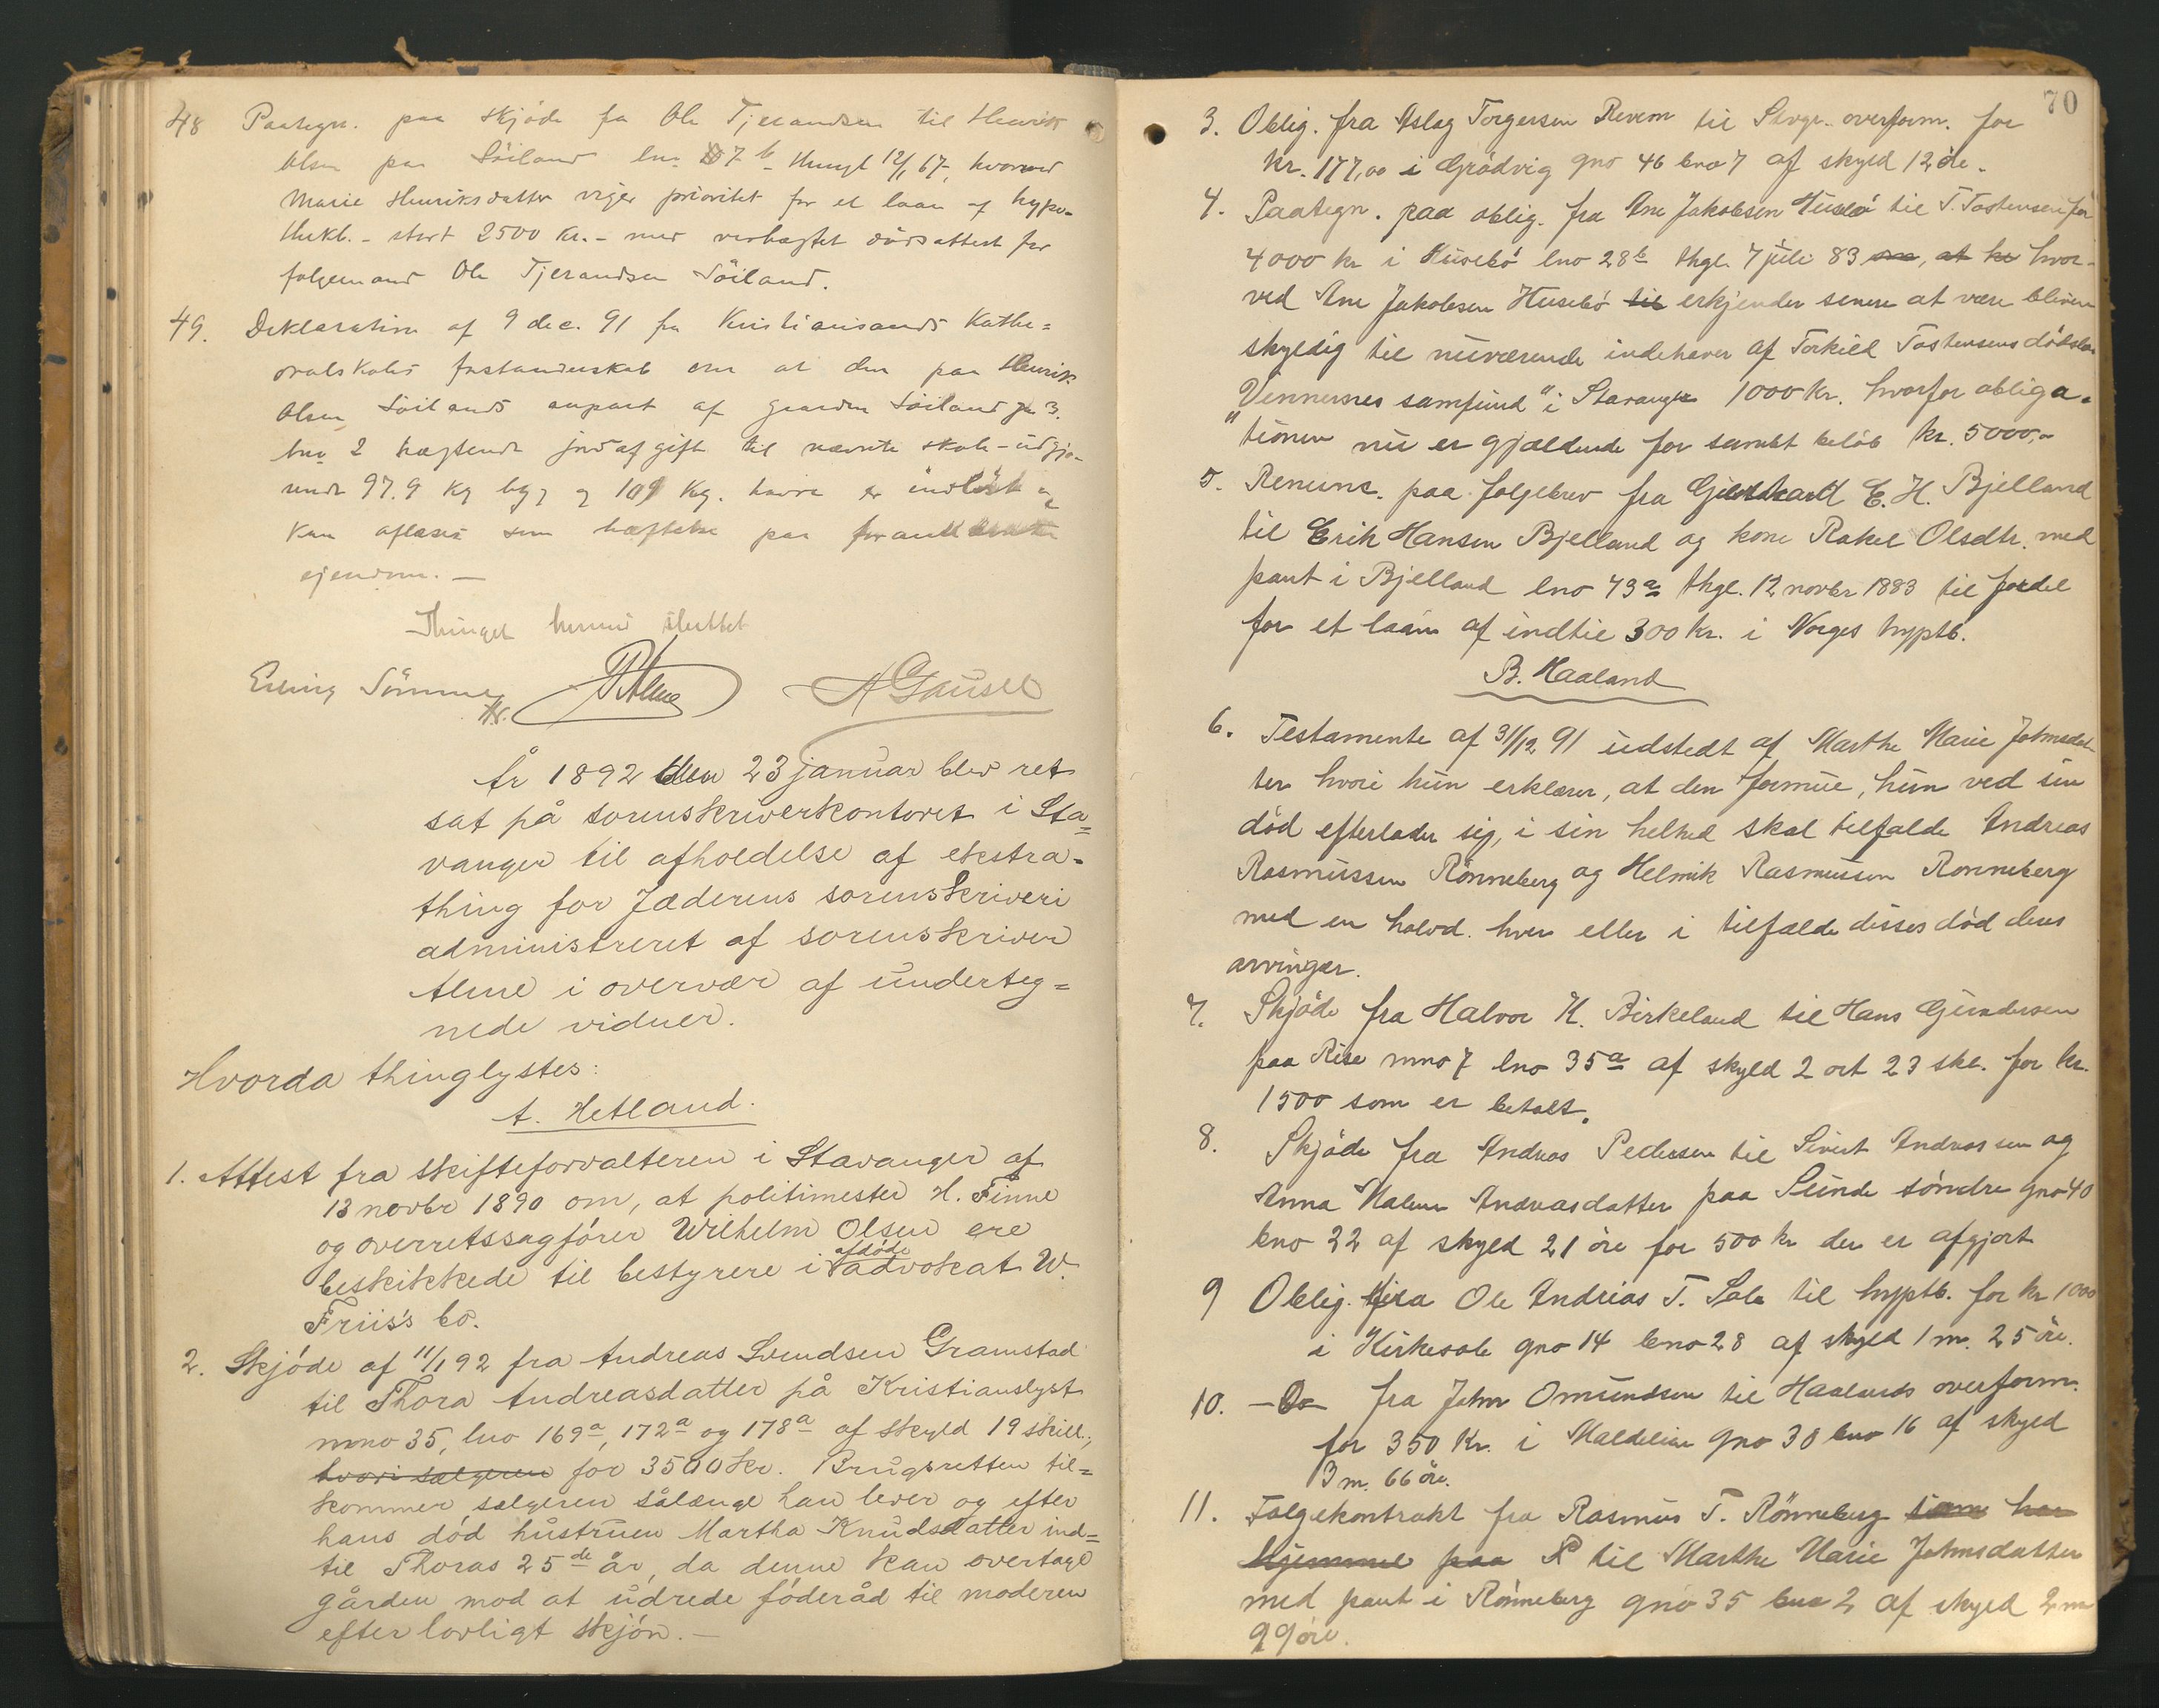 48 Paategn. paa skjøde fra Ole Tjerandsen til Henrik
Olsen paa Søiland lno 7 b thingl 12/1 67, hvorved
Marie Henriksdatter viger prioritet for et laan af hypo-
thekb. - stort 2500 Kr. - med vedhæftet dødsattest for
folgemand Ole Tjerandsen Söiland.
49. Deklaration af 9 dec. 91 fra Kristiansands Kathe=
dralskoles forstanderskab om at den paa Henrik
Olsen Söilands anpart af gaarden Söiland gno 3.
bno 2 hæftende jordafgift til nævnte skole - udgjø-
rende 97.9 Kg byg og 109 Kg. havre er indløst og
kan aflæses som hæftelse paa forannævnte
ejendom. —
Thinget hermed sluttet
Erling Sömme A Gausel
År 1892 den 23 januar blev ret
sat på sorenskriverkontoret i Sta=
vanger til afholdelse af ekstra-
thing for Jæderens sorenskriveri
administreret af sorenskriver
Alme i overvær af underteg=
nede vidner.
Hvorda thinglystes:
A. Hetland.
1. Attest fra skifteforvalteren i Stavanger af
13 novbr 1890 om, at politimester H. Finne
og overretssagfører Wilhelm Olsen ere
beskikkede til bestyrere i afdøde advokat W.
Friis's bo.
2. Skjøde af 11/1 92 fra Andreas Svendsen Gramstad
til Thora Andreasdatter på Kristianslyst
mno 35, lno 169a, 172a og 178a af skyld 19 skill.,
hvori sælgeren for 3500 kr. Brugsretten til=
kommer sælgeren sålænge han lever og efter
hans død hustruen Martha Knudsdatter ind=
til Thoras 25de år, da denne kan overtage
gården mod at udrede føderåd til moderen
efter lovligt skjøn. —
70
3. Oblig. fra Aslag Torgersen Revem til Stvgr. overform. for
kr. 177,00 i Grødvig gno 46 bno 7 af skyld 12 öre.
4. Paategn. paa oblig. fra Ane Jakobsen Husebö til T. Tostensen for
4000 kr i Husebö lno 28b thgl. 7 juli 83 om, at hvor-
ved Ane Jakobsen Husebö til erkjender senere at være bleven
skyldig til nuværende indehaver af Torkild Tostensens dödsbo
"Vennernes samfund" i Stavanger 1000 Kr. hvorfor obliga-
tionen nu er gjældende for samlet beløb kr. 5000,-
5. Renunc. paa folgebrev fra Gjerthard E. H. Bjelland
til Erik Hansen Bjelland og kone Rakel Olsdtr. med
pant i Bjelland lno 73a thgl. 12 novbr 1883 til fordel
for et laan af indtil 300 kr. i Norges hyptb.
B. Haaland
6. Testamente af 31/12 91 udstedt af Marthe Marie Johnsdat
ter hvori hun erklærer, at den formue, hun ved sin
död efterlader sig, i sin helhed skal tilfalde Andreas
Rasmussen Rönneberg og Helmik Rasmussen Ronneberg
med en halvd. hver eller i tilfælde disses död deres
arvinger.
7. Skjöde fra Halvor K. Birkeland til Hans Gundersen
paa Rise mno 7 lno 35a af skyld 2 ort 23 skl. for kr.
1500 som er betalt.
8. Skjöde fra Andreas Pedersen til Sivert Andreassen og
Anna Malene Andreasdatter paa Sunde söndre gno 40
bno 22 af skyld 21 öre for 500 kr der er afgjort
9 Oblig. fra Ole Andreas T. Sola til hyptb. for kr 1000
i Kirkesole gno 14 bno 28 af skyld 1 m. 25 öre.
10. - Do - fra John Omundsen til Haalands overform.
for 350 Kr. i Maldelien gno 30 bno 16 af skyld
3 m. 66 öre.
11. Folgekontrakt fra Rasmus T. Rönneberg som har
hjemmel paa R til Marthe Marie Johnsdatter
med pant i Rönneberg gno 35 bno 2 af skyld 2 m
99 öre.